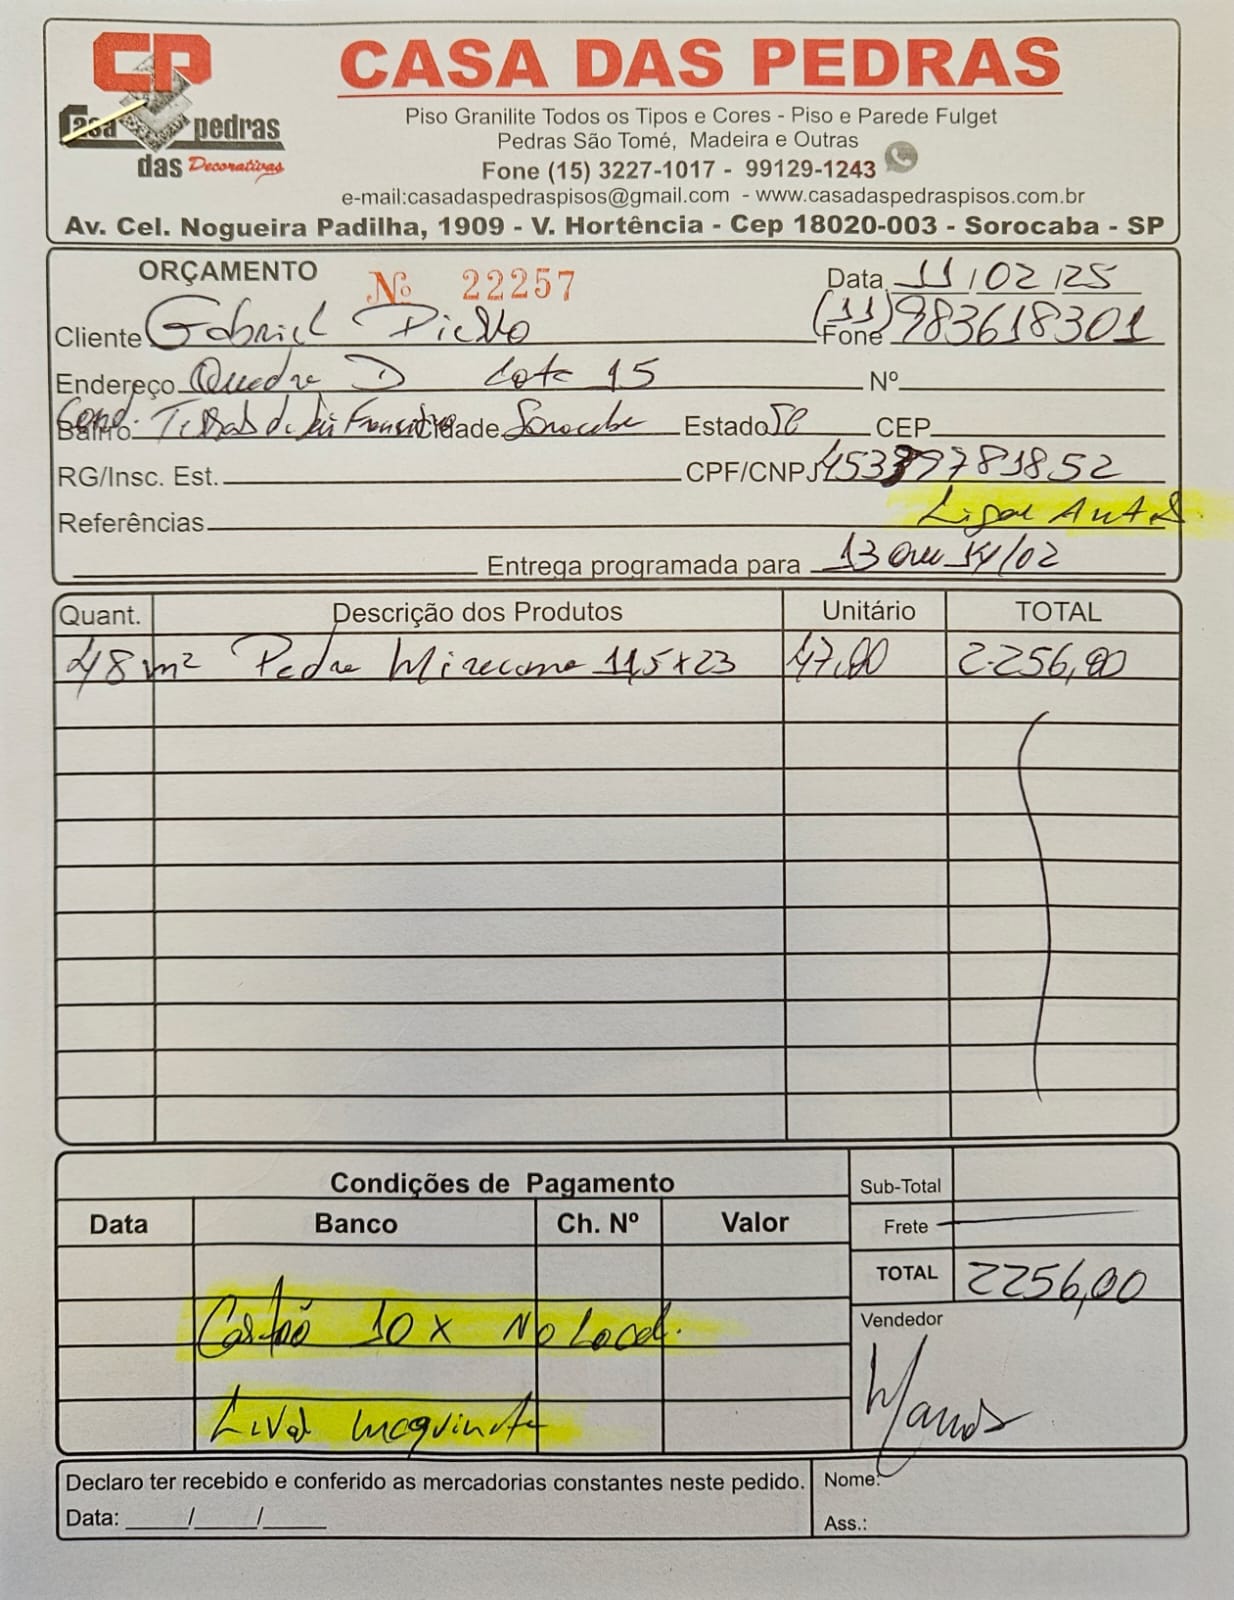 CP
Casa das pedras Decorativas
CASA DAS PEDRAS
Piso Granilite Todos os Tipos e Cores - Piso e Parede Fulget
Pedras São Tomé, Madeira e Outras
Fone (15) 3227-1017 - 99129-1243
e-mail:casadaspedraspisos@gmail.com - www.casadaspedraspisos.com.br
Av. Cel. Nogueira Padilha, 1909 - V. Hortência - Cep 18020-003 - Sorocaba - SP
ORÇAMENTO Nº 22257 Data 11/02/25
Cliente Gabriel Fone (11) 983618301
Endereço Quadra D Lote 15 Nº
Bairro Cond. Cidade Sorocaba Estado SP CEP
RG/Insc. Est. CPF/CNPJ 45399781852
Referências Ligar Antes.
Entrega programada para 13 ou 14/02
Quant. Descrição dos Produtos Unitário TOTAL
48 m² Pedra Miracema 11,5x23 47,00 2.256,00
Condições de Pagamento
Data Banco Ch. Nº Valor
Sub-Total
Frete
TOTAL 2256,00
Cartão 10x No Local.
Vendedor
Levar maquinita
Declaro ter recebido e conferido as mercadorias constantes neste pedido. Nome:
Data: ____/____/____ Ass.: